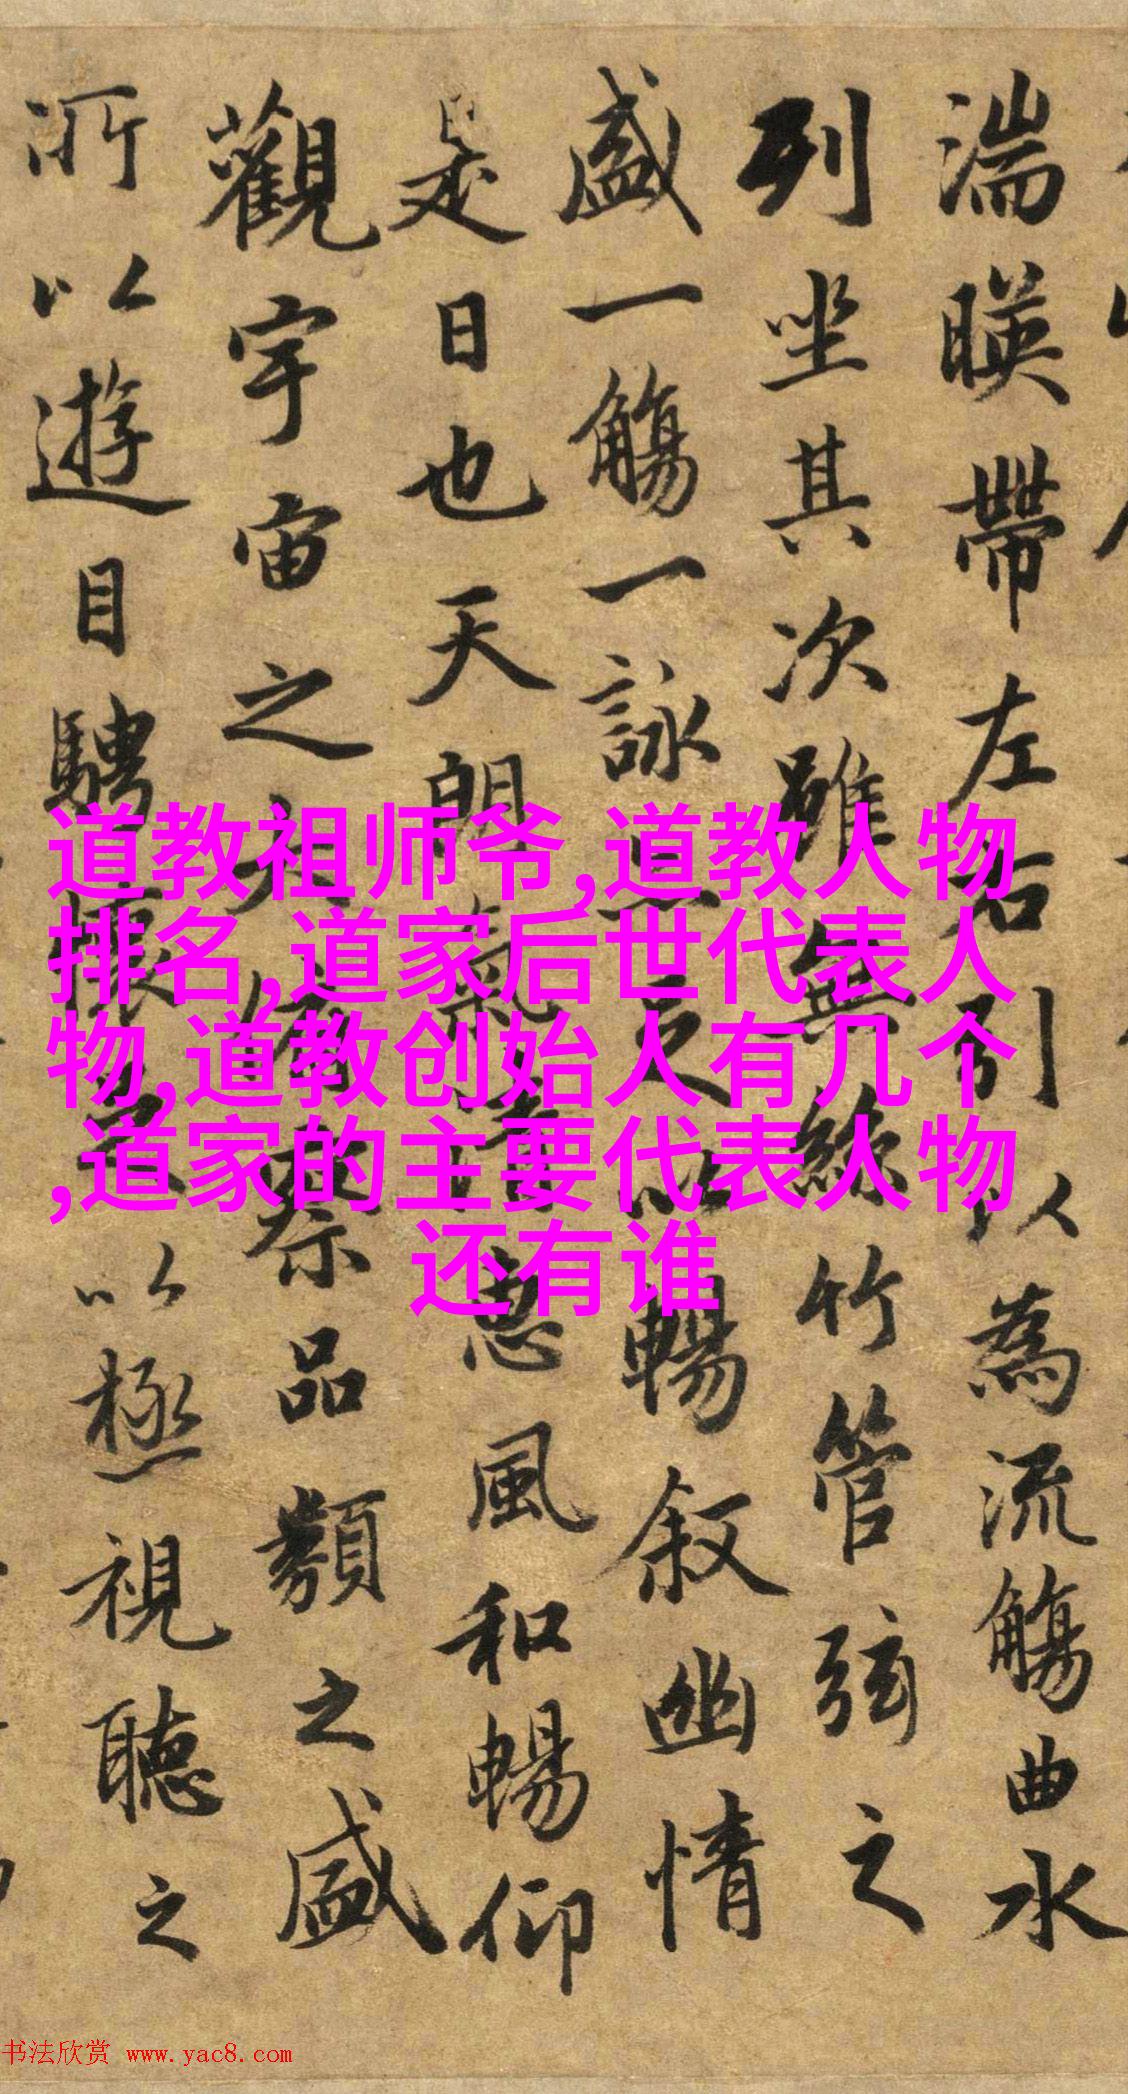 湍暎帶左右引以為流觴曲水
列坐其次雖無絲竹管弦之
盛一觴一詠亦足以暢叙幽情
是日也天朗氣清惠風和暢仰
觀宇宙之大俯察品類之盛
所以遊目騁懷足以極視聽之
道教祖师爷,道教人物
排名,道家后世代表人
物,道教创始人有几个
,道家的主要代表人物
还有谁
书法欣赏 www.yac8.com